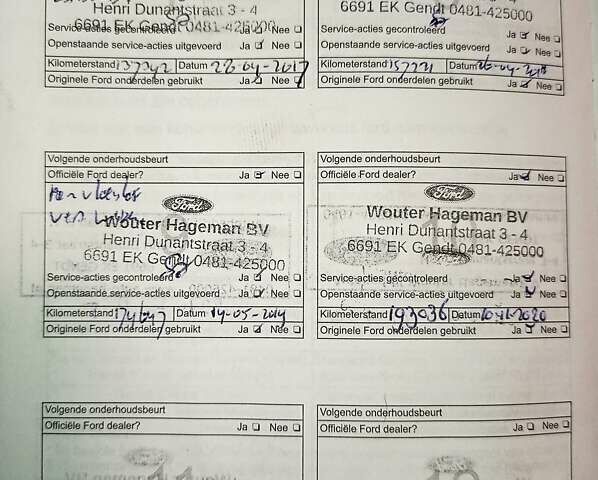 Henri Dunantstraat 3 - 4
6691 EK Gendt 0481-425000
Service-acties gecontroleerd Ja Nee
Openstaande service-acties uitgevoerd Ja Nee
Kilometerstand 137342 Datum 28-04-2017
Originele Ford onderdelen gebruikt Ja Nee
Henri Dunantstraat 3 - 4
6691 EK Gendt 0481-425000
Service-acties gecontroleerd Ja Nee
Openstaande service-acties uitgevoerd Ja Nee
Kilometerstand Datum
Originele Ford onderdelen gebruikt Ja Nee
Volgende onderhoudsbeurt
Officiële Ford dealer? Ja Nee
Ford
Wouter Hageman BV
Henri Dunantstraat 3 - 4
6691 EK Gendt 0481-425000
Service-acties gecontroleerd Ja Nee
Openstaande service-acties uitgevoerd Ja Nee
Kilometerstand Datum 14-05-2019
Originele Ford onderdelen gebruikt Ja Nee
Volgende onderhoudsbeurt
Officiële Ford dealer? Ja Nee
Ford
Wouter Hageman BV
Henri Dunantstraat 3 - 4
6691 EK Gendt 0481-425000
Service-acties gecontroleerd Ja Nee
Openstaande service-acties uitgevoerd Ja Nee
Kilometerstand 193036 Datum
Originele Ford onderdelen gebruikt Ja Nee
Volgende onderhoudsbeurt
Officiële Ford dealer? Ja Nee
Volgende onderhoudsbeurt
Officiële Ford dealer? Ja Nee